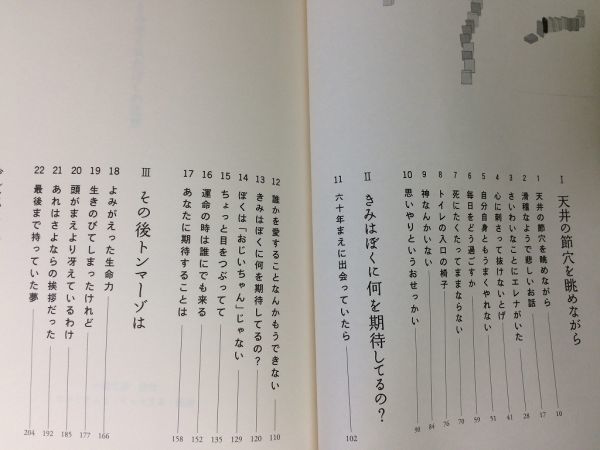 Ⅰ 天井の節穴を眺めながら
1 天井の節穴を眺めながら 10
2 滑稽なようで悲しいお話 17
3 さいわいなことにエレナがいた 28
4 心に刺さって抜けないとげ 41
5 自分自身ともうまくやれない 51
6 毎日をどう過ごすか 59
7 死にたくたってままならない 70
8 トイレの入口の椅子 76
9 神なんかいない 84
10 思いやりというおせっかい 90
Ⅱ きみはぼくに何を期待してるの？
11 六十年まえに出会っていたら 102
12 誰かを愛することなんかもうできない 110
13 きみはぼくに何を期待してるの？ 120
14 ぼくは「おじいちゃん」じゃない 129
15 ちょっと目をつぶってて 135
16 運命の時は誰にでも来る 152
17 あなたに期待することは 158
Ⅲ その後トンマーゾは
18 よみがえった生命力 166
19 生きのびてしまったけれど 177
20 頭がまえより冴えているわけ 185
21 あれはさよならの挨拶だった 192
22 最後まで持っていた夢 204